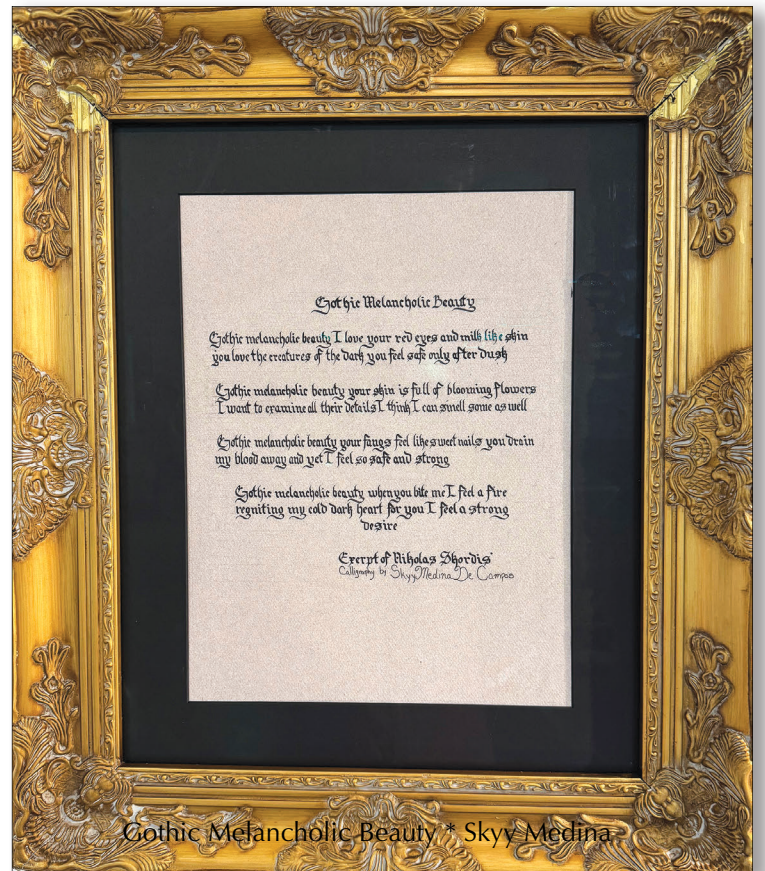 Gothic Melancholic Beauty
Gothic melancholic beauty I love your red eyes and milk like skin
you love the creatures of the dark you feel safe only after dusk
Gothic melancholic beauty your skin is full of blooming flowers
I want to examine all their details I think I can smell some as well
Gothic melancholic beauty your fangs feel like sweet nails you drain
my blood away and yet I feel so safe and strong
Gothic melancholic beauty when you bite me I feel a fire
regniting my cold dark heart for you I feel a strong
desire
Exerpt of Nikolas Skordis'
Calligraphy by Skyy Medina De Campos
Gothic Melancholic Beauty * Skyy Medina